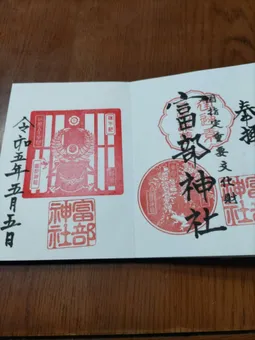 奉拝
国指定重要文化財
富部神社
富部神社
令和五年五月五日
富部神社